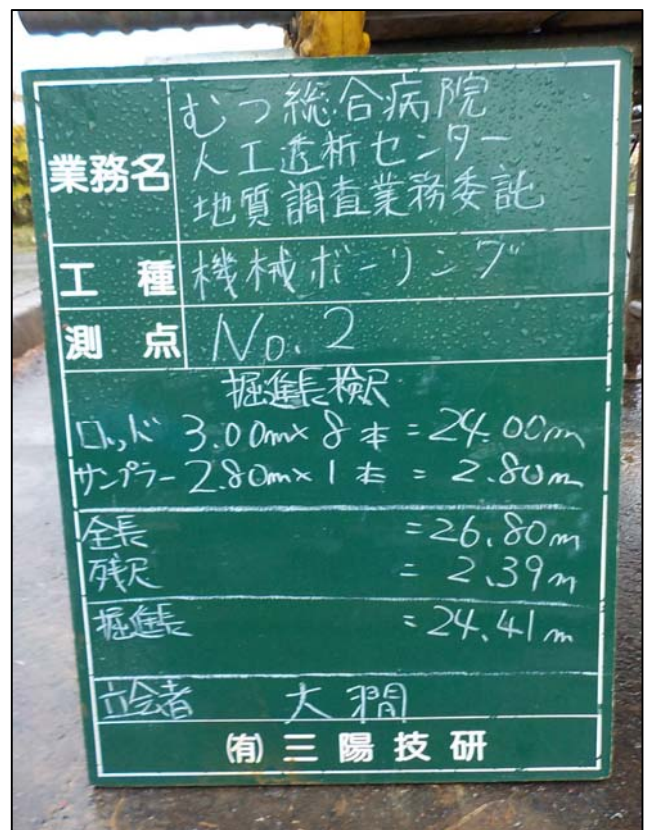 業務名
むつ総合病院
人工透析センター
地質調査業務委託
工種 機械ボーリング
測点 No.2
掘進長検尺
ロッド 3.00m×8本=24.00m
サンプラー 2.80m×1本=2.80m
全長 =26.80m
残尺 =2.39m
掘進長 =24.41m
立会者 大澗
(有)三陽技研